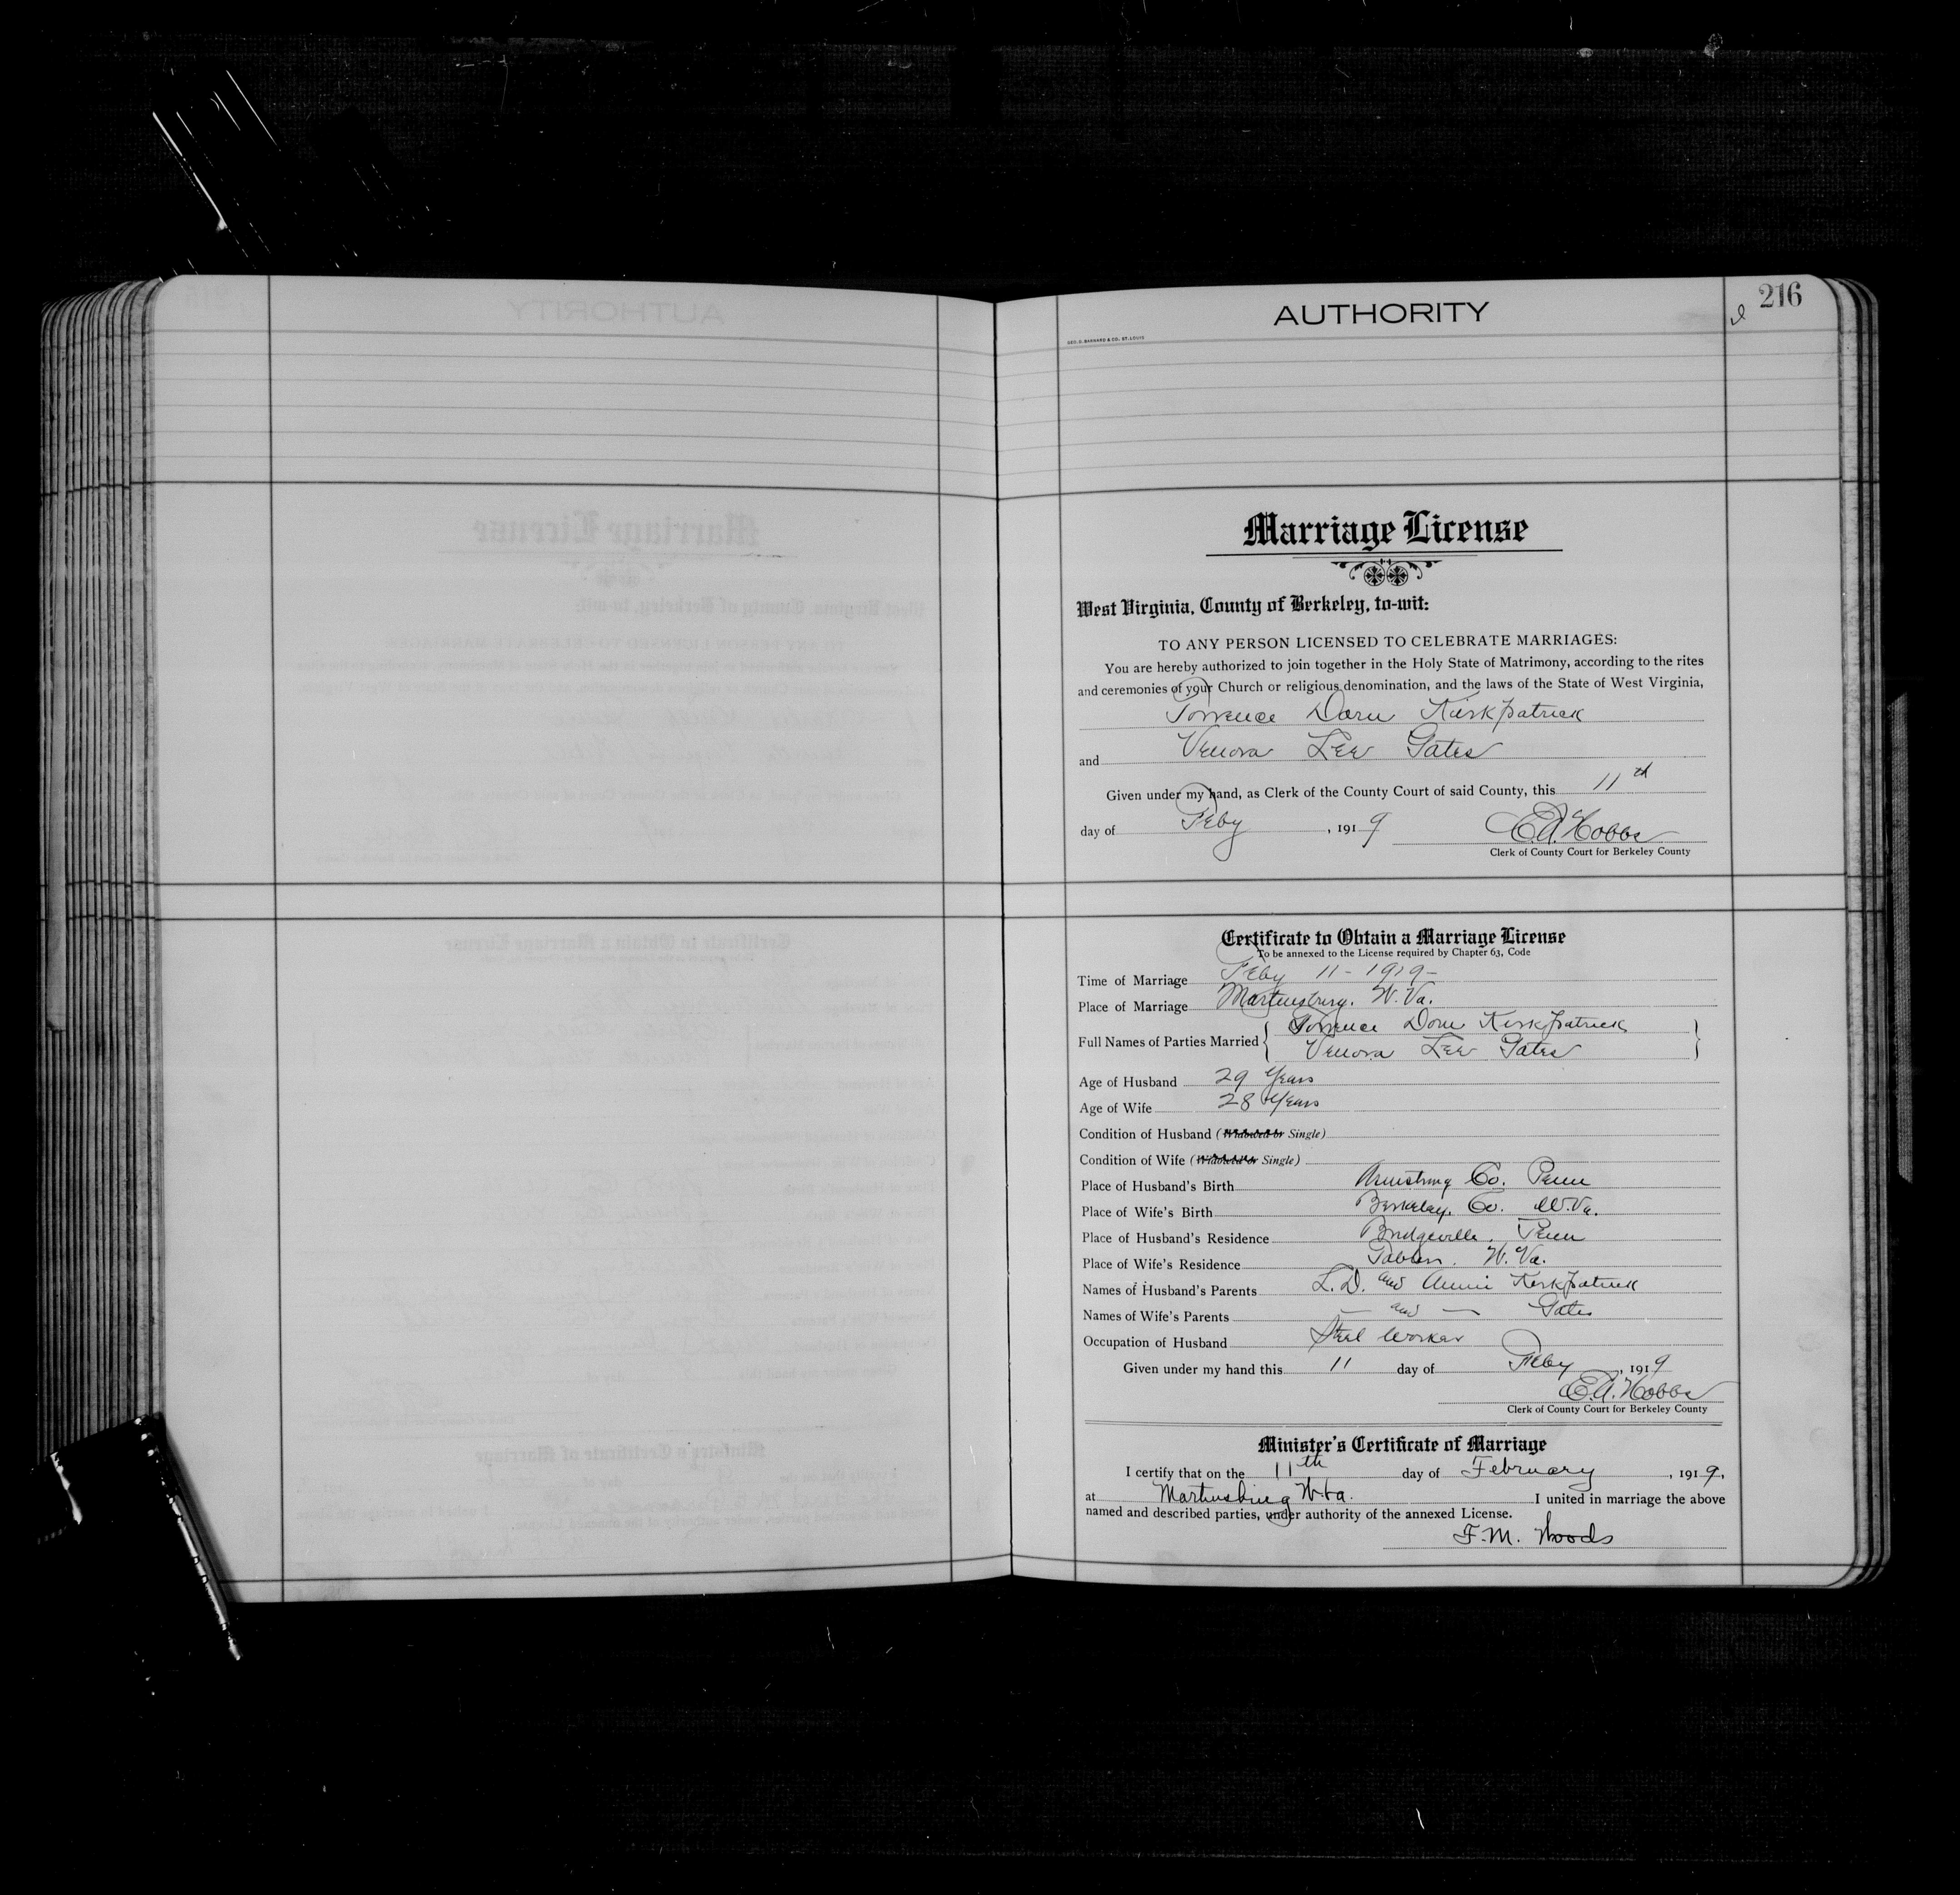 AUTHORITY
216
GEO. D. BARNARD & CO. ST. LOUIS
Marriage License
West Virginia, County of Berkeley, to-wit:
TO ANY PERSON LICENSED TO CELEBRATE MARRIAGES:
You are hereby authorized to join together in the Holy State of Matrimony, according to the rites
and ceremonies of your Church or religious denomination, and the laws of the State of West Virginia,
Torrence Dorn Kirkpatrick
and Venora Lee Gates
Given under my hand, as Clerk of the County Court of said County, this 11th
day of Feby, 1919 E.A. Hobbs
Clerk of County Court for Berkeley County
Certificate to Obtain a Marriage License
To be annexed to the License required by Chapter 63, Code
Time of Marriage Feby 11 - 1919 -
Place of Marriage Martinsburg. W. Va.
Full Names of Parties Married { Torrence Dorn Kirkpatrick }
Venora Lee Gates
Age of Husband 29 Years
Age of Wife 28 Years
Condition of Husband (Widowed or Single)
Condition of Wife (Widowed or Single)
Place of Husband's Birth Armstrong Co. Penn
Place of Wife's Birth Berkeley. Co. W. Va.
Place of Husband's Residence Bridgeville. Penn
Place of Wife's Residence Tablers. W. Va.
Names of Husband's Parents L. D. and Annie Kirkpatrick
Names of Wife's Parents — and — Gates
Occupation of Husband Steel Worker
Given under my hand this 11 day of Feby, 1919
E.A. Hobbs
Clerk of County Court for Berkeley County
Minister's Certificate of Marriage
I certify that on the 11th day of February, 1919,
at Martinsburg W. Va. I united in marriage the above
named and described parties, under authority of the annexed License.
F. M. Woods